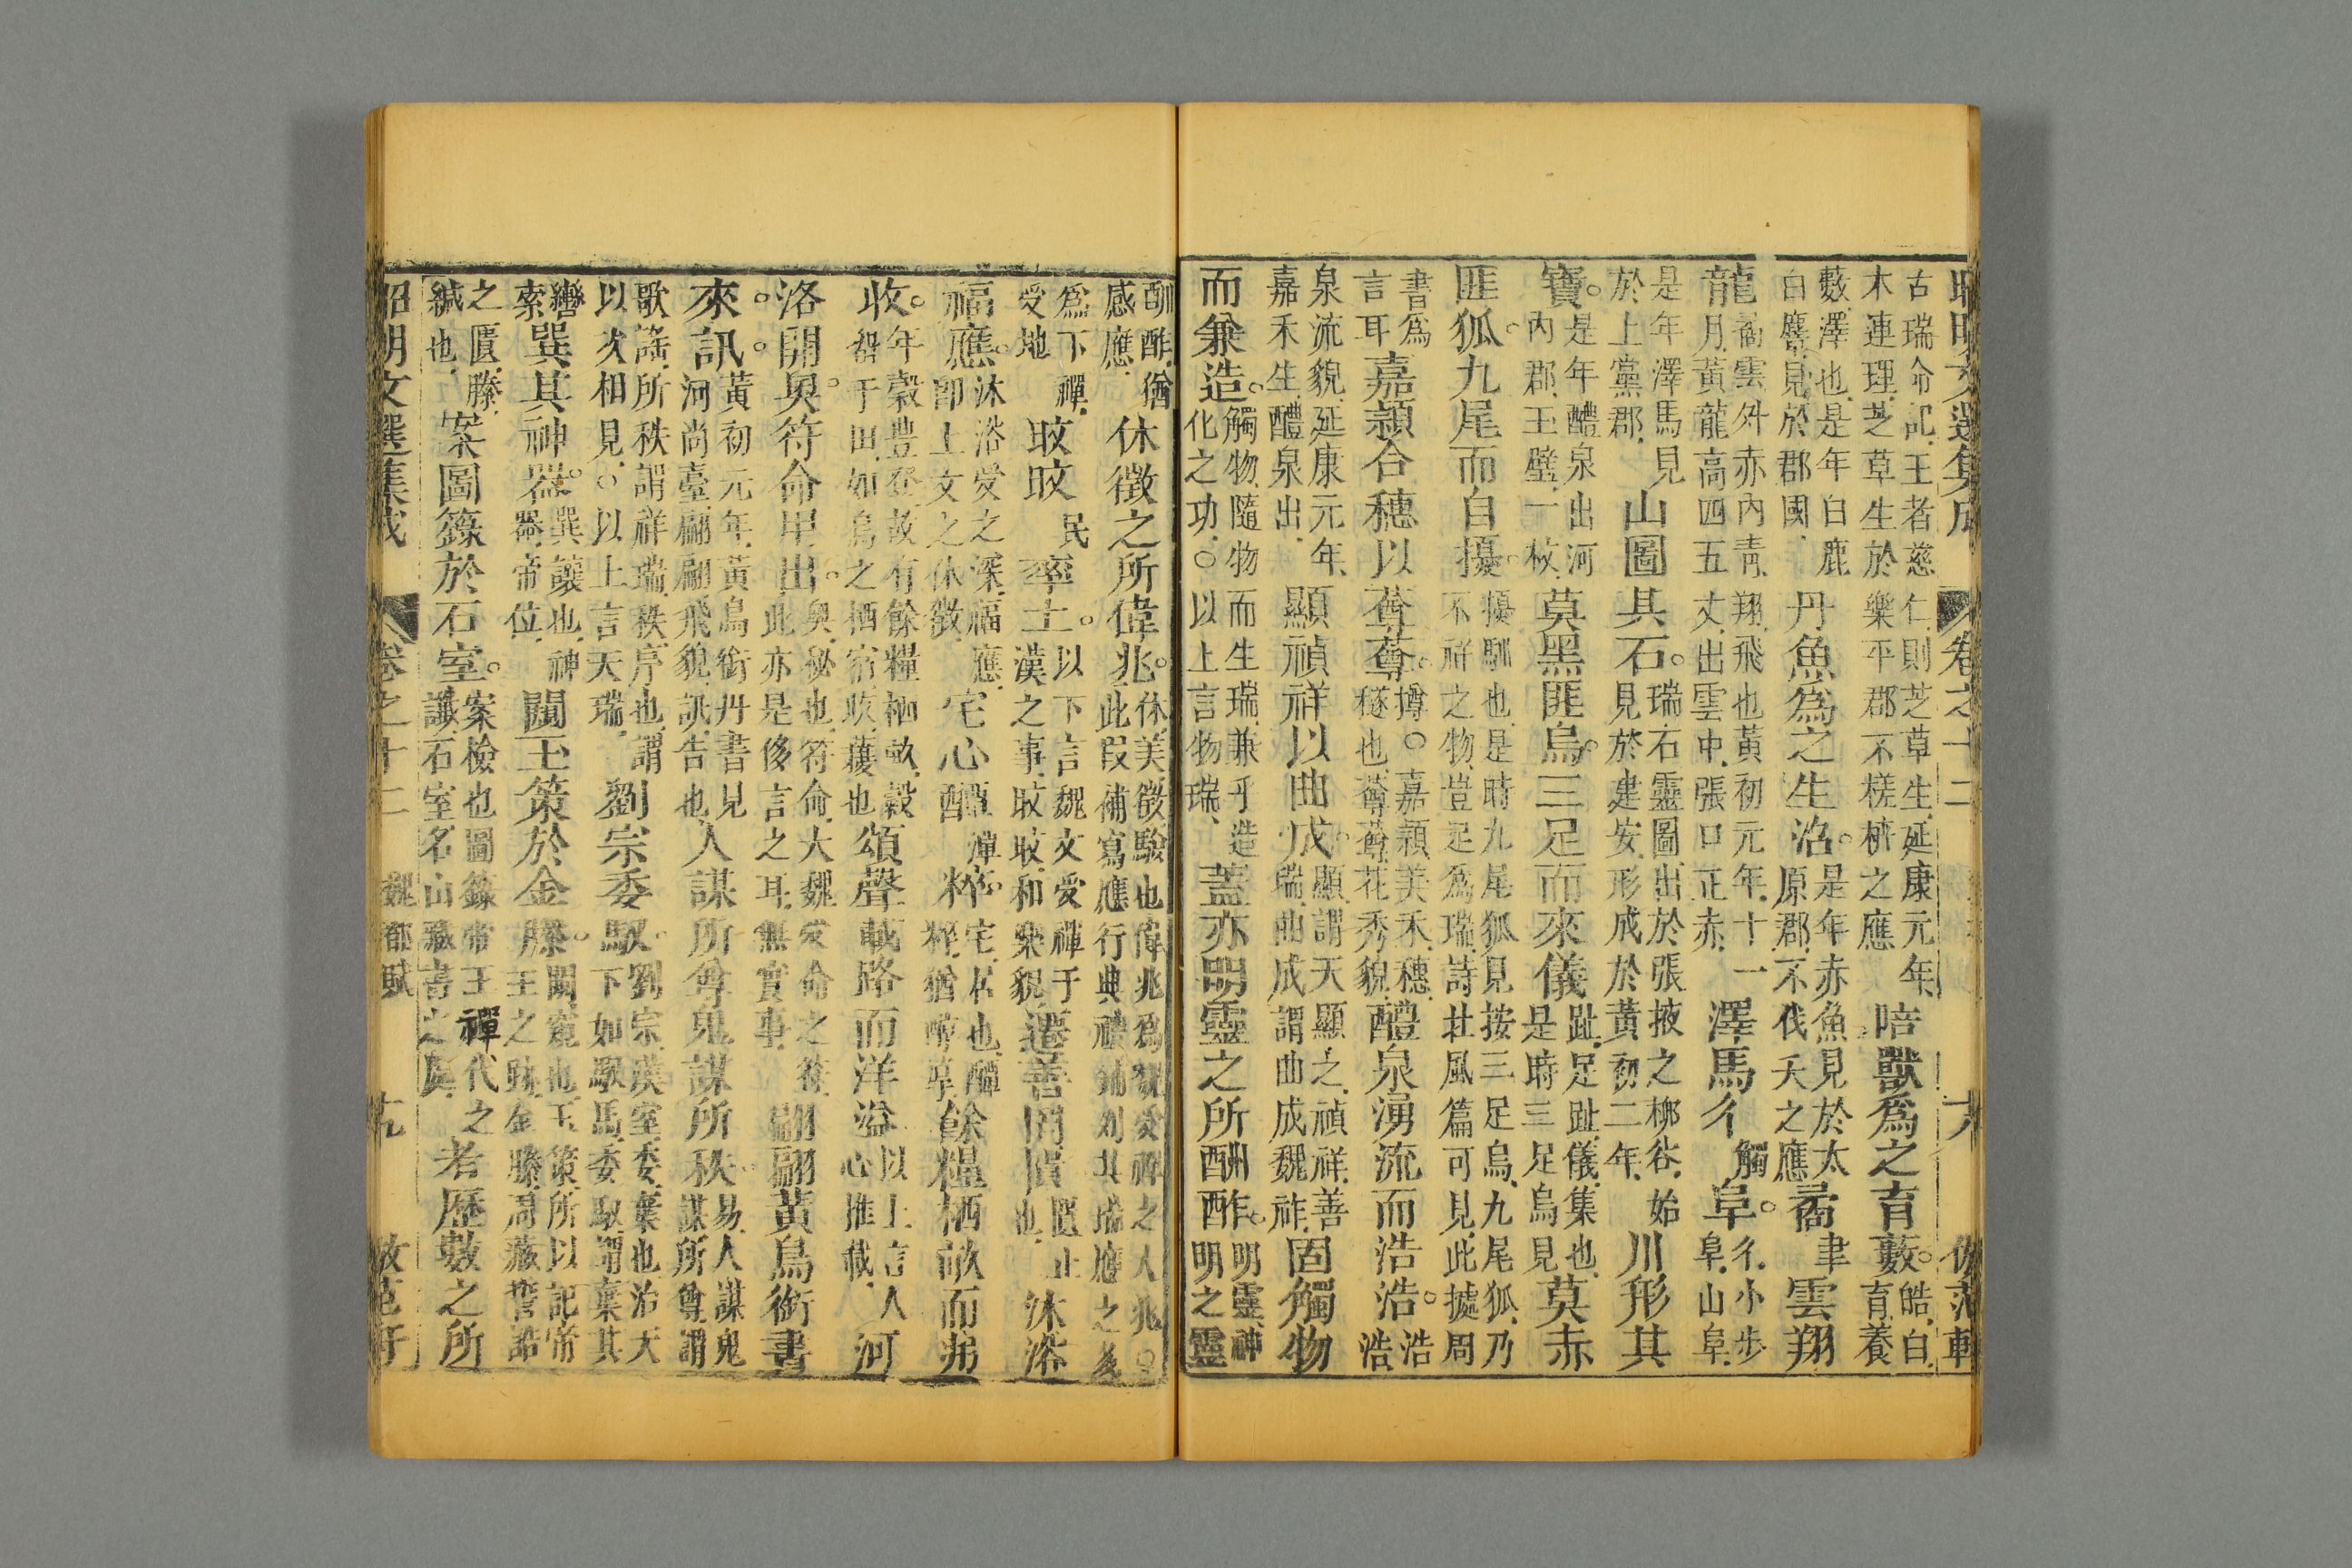 昭明文選集成 卷之十二 倣范軒
古瑞命記王者慈仁則芝草生延康元年
木連理芝草生於樂平郡不槎枿之應
皓獸為之育藪。
皓白
育養
藪澤也是年白鹿
白麞見於郡國
丹魚為之生沼。
是年赤魚見於太
原郡不伐夭之應
矞聿雲翔
龍
矞雲外赤內青翔飛也黃初元年十一
月黃龍高四五丈出雲中張口正赤
澤馬亍觸阜。
亍小步
阜山阜
是年澤馬見
於上黨郡
山圖其石。
瑞石靈圖出於張掖之柳谷始
見於建安形成於黃初二年
川形其
寶。
是年醴泉出河
內郡玉璧一枚
莫黑匪烏。三足而來儀
趾足趾儀集也
是時三足烏見
莫赤
匪狐。九尾而自擾。
擾馴也是時九尾狐見按三足烏九尾狐乃
不祥之物豈足為瑞詩北風篇可見此據周
書為
言耳
嘉穎合穗以蓴蓴。
撙○嘉穎美禾穗
穟也蓴蓴花秀貌
醴泉湧流而浩浩。
浩
浩
泉流貌延康元年
嘉禾生醴泉出
顯禎祥以曲成。
顯謂天顯之禎祥善
瑞曲成謂曲成魏祚
固觸物
而兼造。
觸物隨物而生瑞兼乎造
化之功○以上言物瑞
蓋亦明靈之所酬酢。
明靈神
明之靈
酬酢猶
感應
休徵之所偉兆。
休美徵驗也偉兆為魏受禪之大兆○
此段補寫應行典禮鋪列其瑞應之多
為下禪
受地
旼旼民率土。
以下言魏文受禪于
漢之事旼旼和樂貌
遷善罔匱
匱止
也
沐浴
福應。
沐浴受之深福應
即上文之休徵
宅心醰禪粹。
宅居也醰
粹猶醇厚
餘糧栖畝而弗
收。
年穀豐登故有餘糧栖畝穀
留于田如鳥之栖宿收穫也
頌聲載路而洋溢
以上言人
心推戴
河
洛開奧。符命用出。
奧祕也符命大魏受命之符
此亦是侈言之耳無實事
翩翩黃鳥銜書
。來訊。
黃初元年黃鳥銜丹書見
河尚臺翩翩飛貌訊告也
人謀所尊鬼謀所秩。
易人謀鬼
謀所尊謂
歌謠所秩謂祥瑞秩序也謂
以次相見○以上言天瑞
劉宗委馭。
劉宗漢室委棄也治天
下如馭馬委馭謂棄其
轡
索
巽其神器。
巽讓也神
器帝位
闚玉策於金縢。
闚窺也玉策所以記帝
王之
金縢周藏誓誥
之匱縢
緘也
案圖籙於石室。
案檢也圖籙帝王禪代之
讖石室名山藏書之處
考歷數之所
昭明文選集成 卷之十二 魏都賦 倣范軒